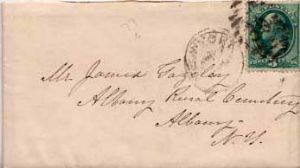 Mr. James
Albany Rural Cemetery
Albany
N.Y.